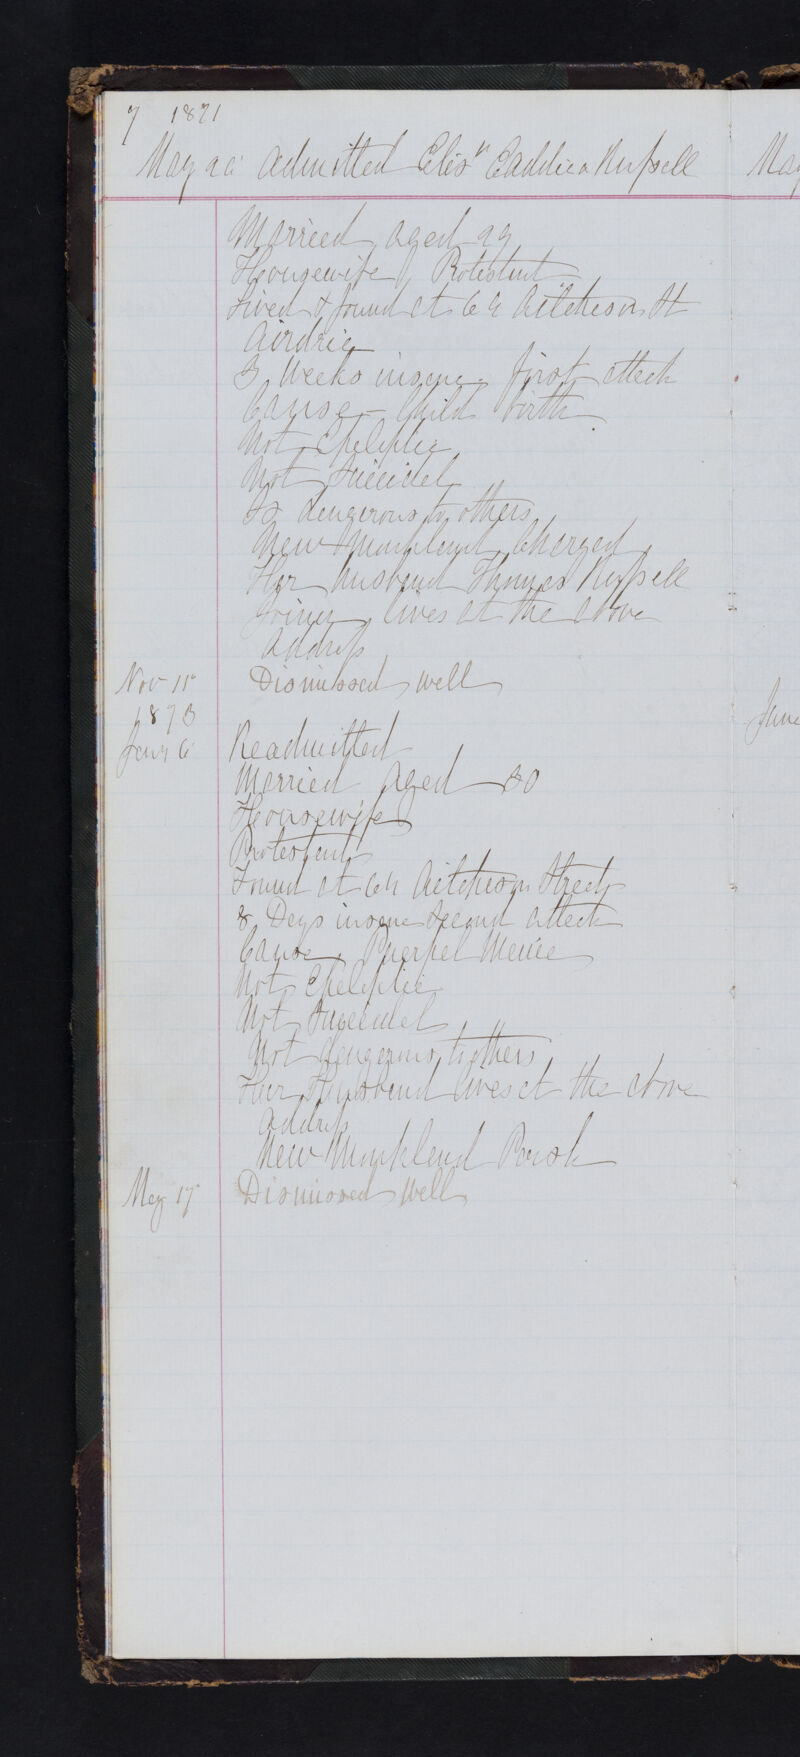 7 1871
May 22 Admitted Elizth Caddie or Russell
May
Married aged 29
Housewife Protestant
Lived & found at 64 Aitcheson St
Airdrie
3 Weeks insane first attack
Cause - Child birth
Not Epeleptic
Not Suicidal
Is dangerous to others
New Monkland Charged
Her husband Thomas Russell
Joiner lives at the above
Address
Nov 11 Dismissed well
1873
June
Jany 6 Readmitted
Married Aged 30
Housewife
Protestant
Found at 64 Aitcheson Street
8 Days insane Second attack
Cause Puerpel Manie
Not Epeleptic
Not Suicidal
Not dangerous to others
Her Husband lives at the above
Address
New Monkland Parish
May 17 Dismissed Well